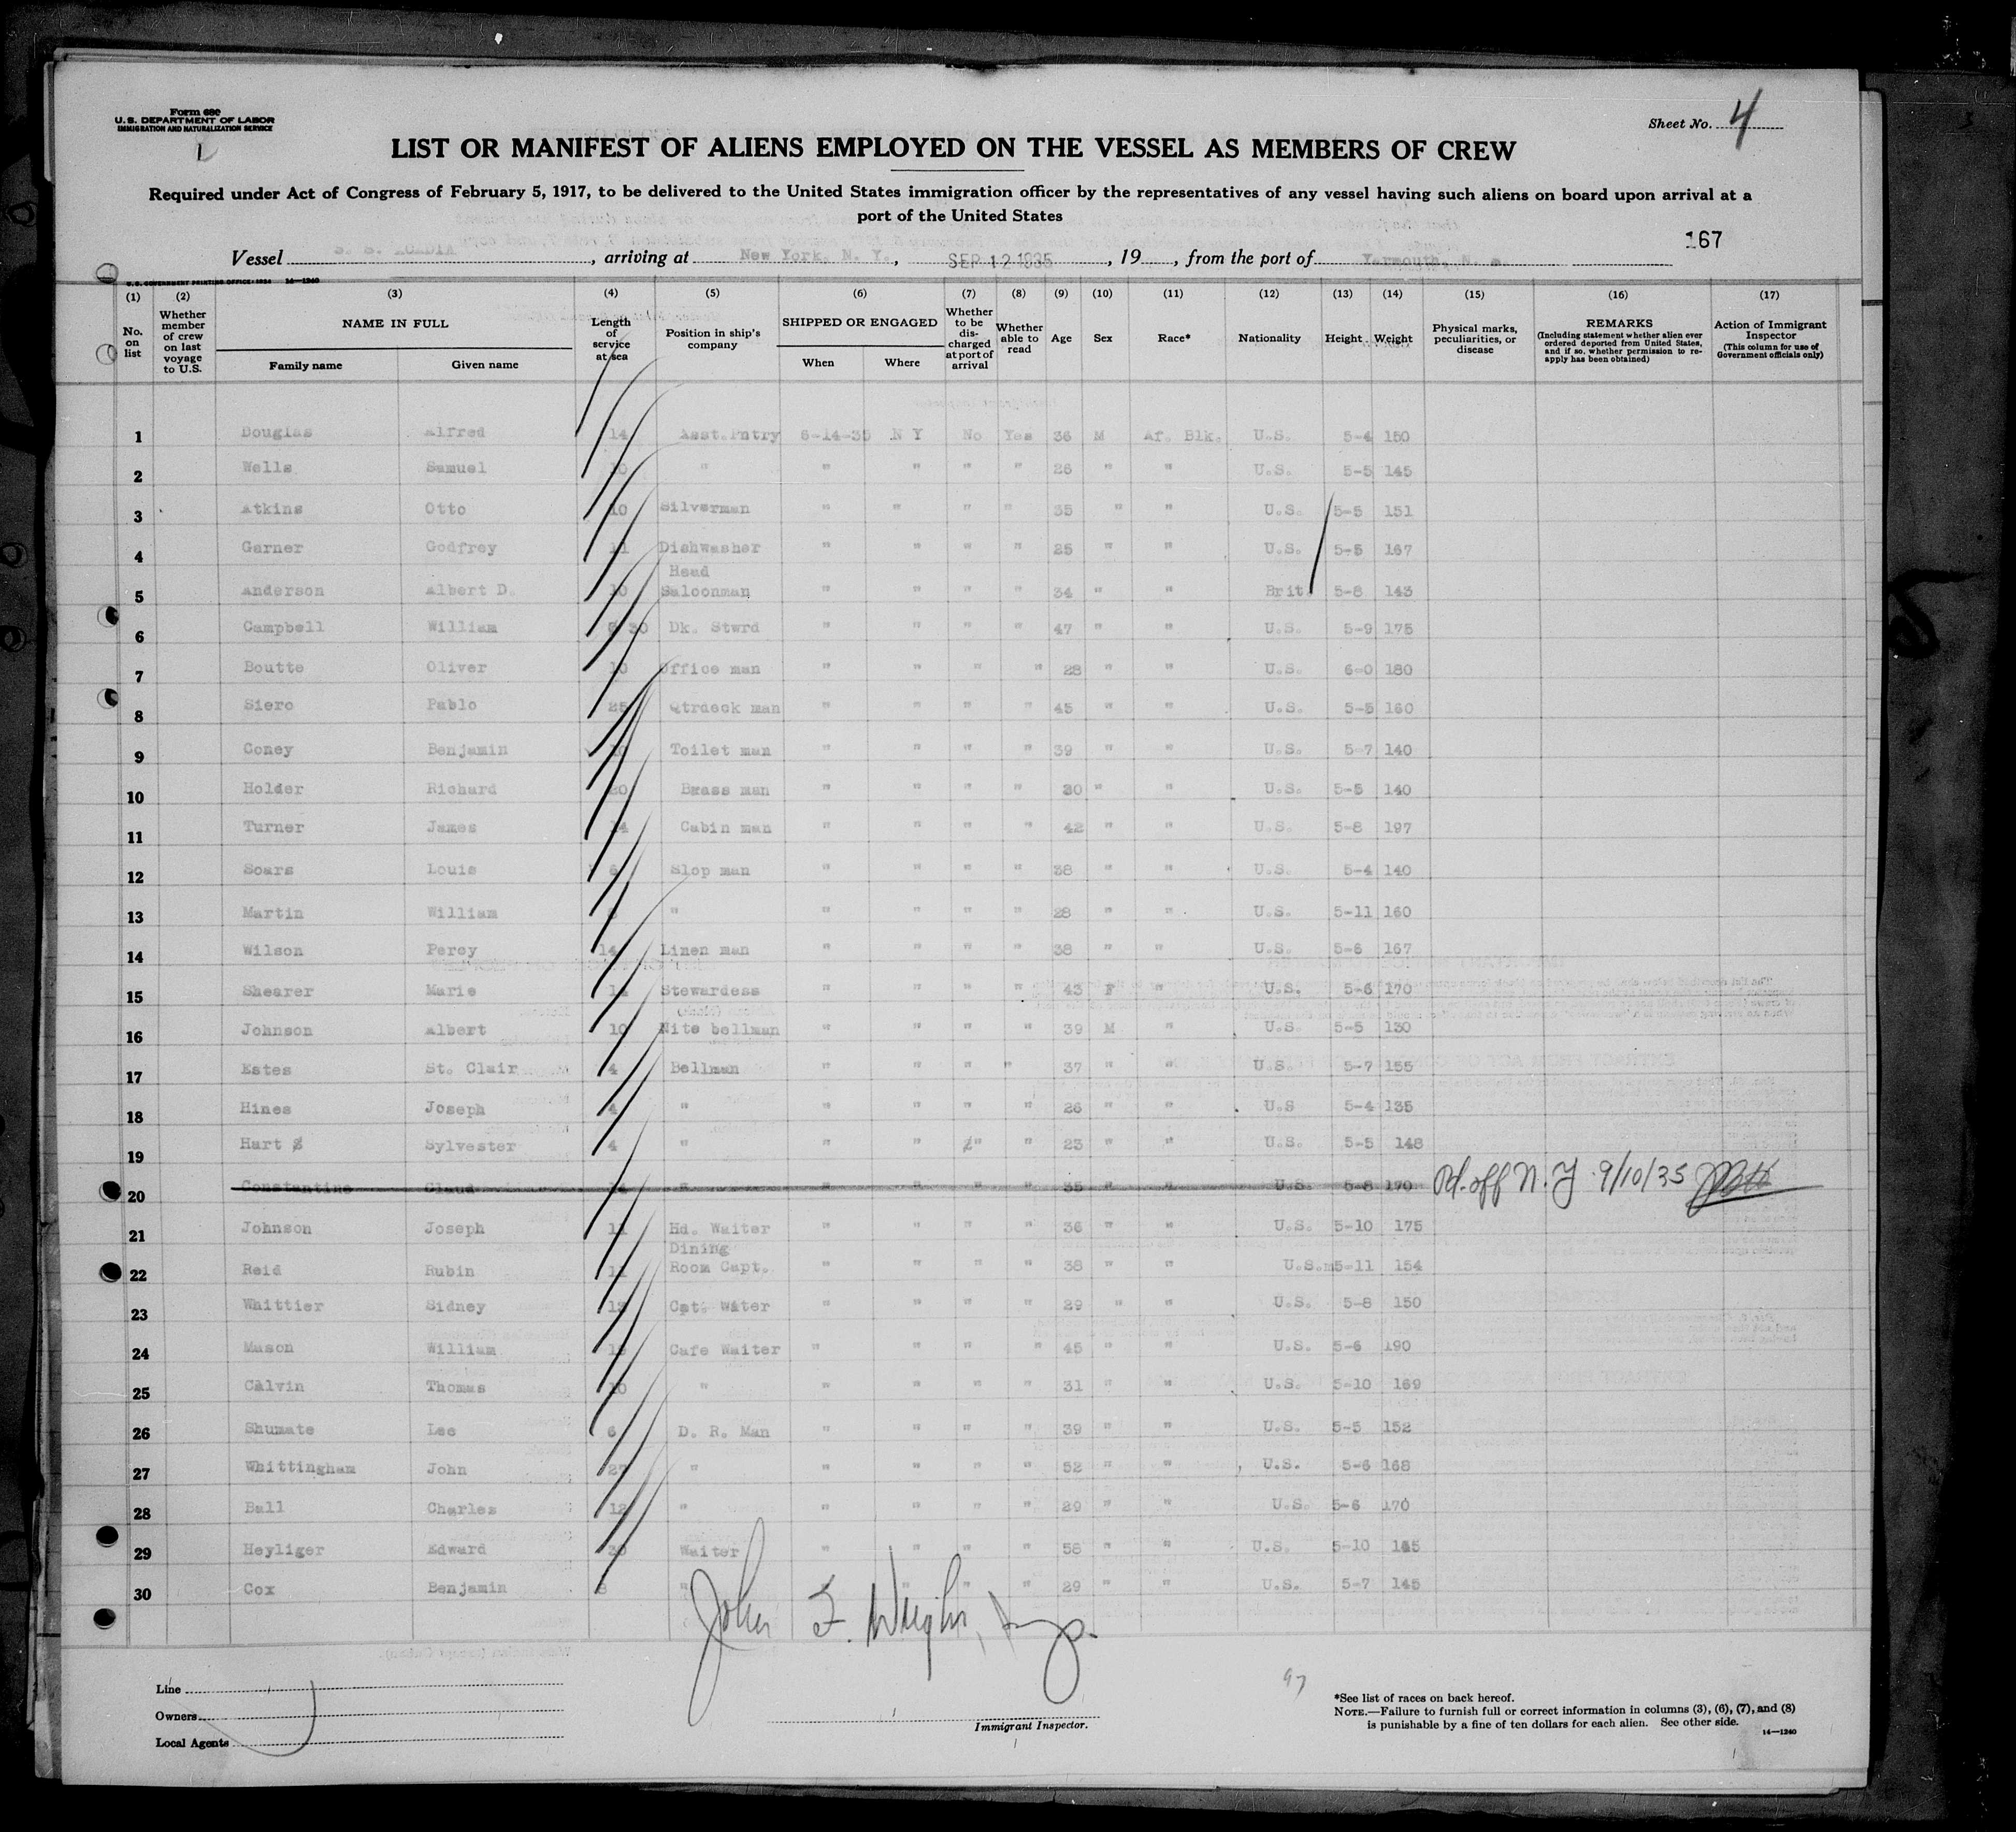 Form 680
U. S. DEPARTMENT OF LABOR
IMMIGRATION AND NATURALIZATION SERVICE
Sheet No. 4
LIST OR MANIFEST OF ALIENS EMPLOYED ON THE VESSEL AS MEMBERS OF CREW
Required under Act of Congress of February 5, 1917, to be delivered to the United States immigration officer by the representatives of any vessel having such aliens on board upon arrival at a
port of the United States
167
Vessel S. S. ACADIA, arriving at New York, N. Y., SEP 12 1935, 19, from the port of Yarmouth, N. S.
U. S. GOVERNMENT PRINTING OFFICE: 1934 14—1240
(1) (2) (3) (4) (5) (6) (7) (8) (9) (10) (11) (12) (13) (14) (15) (16) (17)
No. on list
Whether member of crew on last voyage to U.S.
NAME IN FULL
Family name Given name
Length of service at sea
Position in ship's company
SHIPPED OR ENGAGED
When Where
Whether to be discharged at port of arrival
Whether able to read
Age Sex Race* Nationality Height Weight
Physical marks, peculiarities, or disease
REMARKS
(Including statement whether alien ever ordered deported from United States, and if so, whether permission to reapply has been obtained)
Action of Immigrant Inspector
(This column for use of Government officials only)
1 Douglas Alfred 14 Asst.Pntry 6-14-35 N Y No Yes 36 M Af. Blk. U.S. 5-4 150
2 Wells Samuel 10 " " " " " 26 " " U.S. 5-5 145
3 Atkins Otto 10 Silverman " " " " 35 " " U.S. 5-5 151
4 Garner Godfrey 11 Dishwasher " " " " 25 " " U.S. 5-5 167
5 Anderson Albert D. 10 Head Saloonman " " " " 34 " " Brit. 5-8 143
6 Campbell William 30 Dk. Stwrd " " " " 47 " " U.S. 5-9 175
7 Boutte Oliver 10 Office man " " " " 28 " " U.S. 6-0 180
8 Siero Pablo 25 Qtrdeck man " " " " 45 " " U.S. 5-5 160
9 Coney Benjamin 10 Toilet man " " " " 39 " " U.S. 5-7 140
10 Holder Richard 20 Brass man " " " " 30 " " U.S. 5-5 140
11 Turner James 14 Cabin man " " " " 42 " " U.S. 5-8 197
12 Soars Louis 6 Slop man " " " " 38 " " U.S. 5-4 140
13 Martin William " " " " " 28 " " U.S. 5-11 160
14 Wilson Percy 14 Linen man " " " " 38 " " U.S. 5-6 167
15 Shearer Marie Stewardess " " " " 43 F " U.S. 5-6 170
16 Johnson Albert 10 Nite bellman " " " " 39 M " U.S. 5-5 130
17 Estes St. Clair 4 Bellman " " " " 37 " " U.S. 5-7 155
18 Hines Joseph 4 " " " " " 26 " " U.S 5-4 135
19 Hart Sylvester 4 " " " " " 23 " " U.S. 5-5 148
20 Constantine Claud 14 " " " " " 35 " " U.S. 5-8 170 Pd. off N. Y 9/10/35
21 Johnson Joseph 11 Hd. Waiter " " " " 36 " " U.S. 5-10 175
22 Reid Rubin 11 Dining Room Capt. " " " " 38 " " U.S.m5-11 154
23 Whittier Sidney Cpt. Water " " " " 29 " " U.S. 5-8 150
24 Mason William Cafe Waiter " " " " 45 " " U.S. 5-6 190
25 Calvin Thomas 10 " " " " " 31 " " U.S. 5-10 169
26 Shumate Lee 6 D. R. Man " " " " 39 " " U.S. 5-5 152
27 Whittingham John 27 " " " " " 52 " " U.S. 5-6 168
28 Ball Charles 12 " " " " " 29 " " U.S. 5-6 170
29 Heyliger Edward Waiter " " " " 58 " " U.S. 5-10 145
30 Cox Benjamin 8 " " " " " 29 " " U.S. 5-7 145
John F. Wright, Insp.
Line
Owners
Local Agents
Immigrant Inspector.
97
*See list of races on back hereof.
NOTE.—Failure to furnish full or correct information in columns (3), (6), (7), and (8)
is punishable by a fine of ten dollars for each alien. See other side.
14—1240